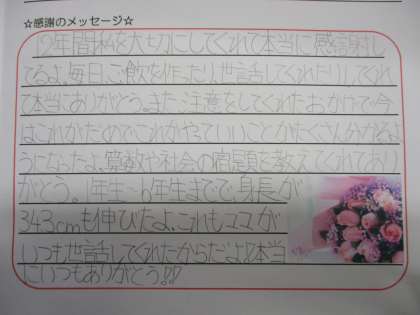 ☆感謝のメッセージ☆
12年間私を大切にしてくれて本当に感謝し
てるよ。毎日、ご飯を作ったり、世話してくれたりしてくれ
て本当にありがとう。また注意をしてくれたおかげで今
はこれがだめでこれがやっていいことがたくさん分かるよ
うになったよ。算数や社会の宿題を教えてくれてあり
がとう。1年生〜6年生までで、身長が
34.3cmも伸びたよ。これもママが
いつも世話してくれたからだよ!!本当
にいつもありがとう!!